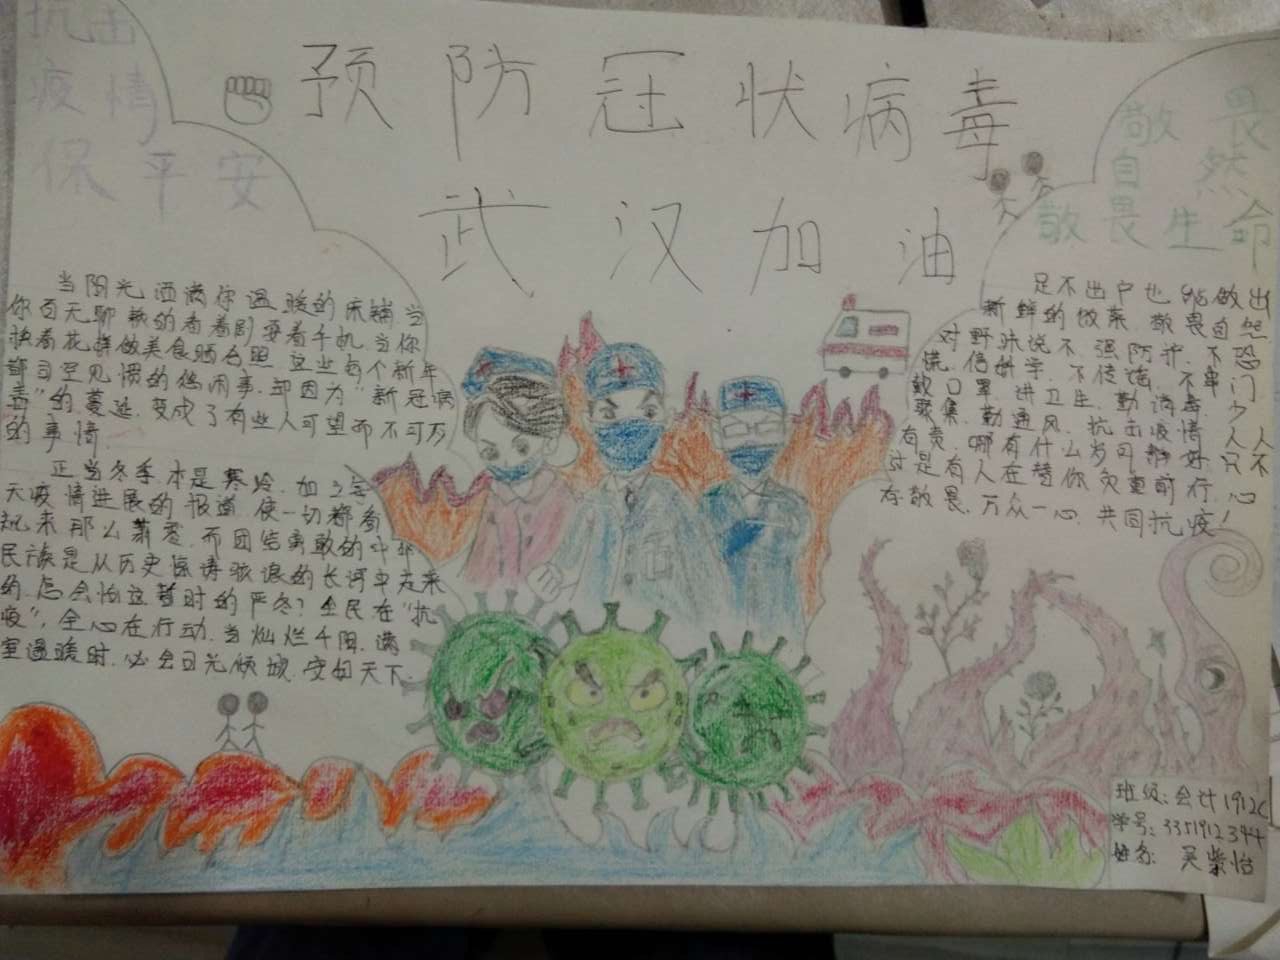 抗击
疫情
保平安
预防冠状病毒
武汉加油
敬畏
自然
敬畏生命
当阳光洒满你温暖的床铺当
你百无聊赖的看着剧耍着手机.当你
换着花样做美食晒合照.这些每个新年
都司空见惯的俗闲事.却因为“新冠病
毒”的蔓延.变成了有些人可望而不可及
的事情.
正当冬季本是寒冷.加之每
天疫情进展的报道.使一切都看
起来那么萧索.而团结勇敢的中华
民族是从历史惊涛骇浪的长河中走来
的.怎会怕这暂时的严冬?全民在“抗
疫”,全心在行动.当灿烂千阳.满
室温暖时.必会日光倾城.安如天下.
足不出户也能做出
新鲜的饭菜.敬畏自然
对野味说不.强防护.不恐
慌.信科学.不传谣.不串门
戴口罩.讲卫生.勤消毒.少
聚集.勤通风.抗击疫情人人
有责.哪有什么岁月静好.只不
过是有人在替你负重前行.心
存敬畏.万众一心.共同抗疫!
班级:会计1912C
学号:3351912344
姓名: 吴紫怡